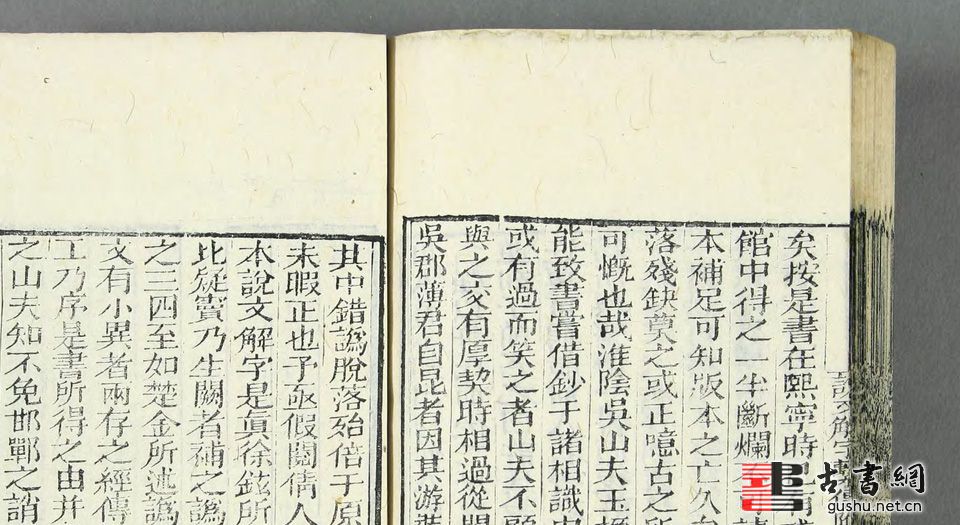 矣按是書在熙寧時
館中得之一半斷爛
本補足可知版本之亡久
落殘缺莫之或正噫古之所
可慨也哉淮陰吳山夫玉搢
能致書嘗借鈔于諸相識
或有過而笑之者山夫不顧
與之交有厚契時相過從
吳郡薄君自昆者因其游
其中錯譌脫落始倍于原
未暇正也予亟假閱倩人
本說文解字是眞徐鉉所
比疑竇乃生闕者補之譌
之三四至如楚金所述譌
文有小異者兩存之經傳
工乃序是書所得之由并
之山夫知不免邯鄲之誚
古書網
gushu.net.cn